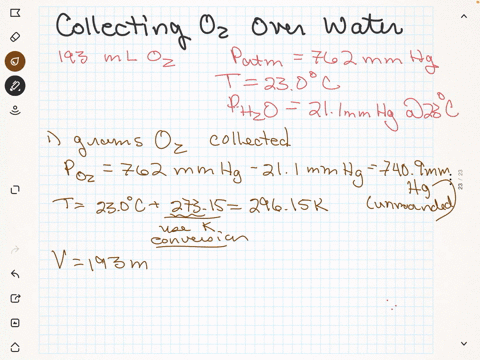 Collecting O₂ Over Water
193 mL O₂
Patm = 762 mm Hg
T = 23.0°C
PH₂O = 21.1 mm Hg @ 23°C
1) grams O₂ collected
PO₂ = 762 mm Hg - 21.1 mm Hg = 740.9 mm
Hg
(unrounded)
T = 23.0°C + 273.15 = 296.15 K
use K
conversion
V = 193 m
23 / 23